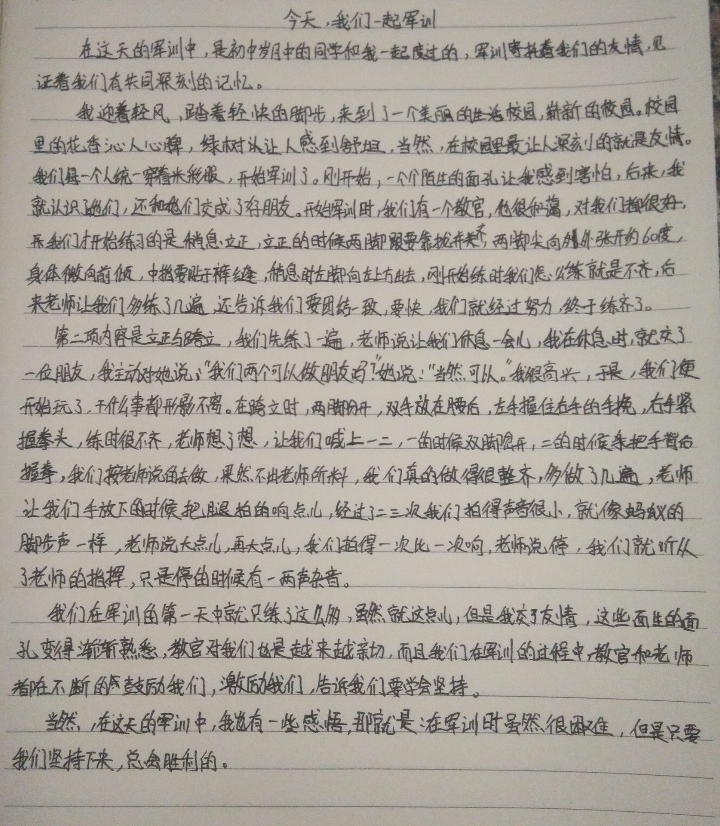 今天,我们一起军训
在这天的军训中,是初中岁月中的同学和我一起度过的,军训寄托着我们的友情,见
证着我们有共同深刻的记忆。
我迎着轻风,踏着轻快的脚步,来到了一个美丽的生活校园,崭新的校园。校园
里的花香沁人心脾,绿树认让人感到舒坦,当然,在校园里最让人深刻的就是友情。
我们每一个人统一穿着米彩服,开始军训了。刚开始,一个个陌生的面孔让我感到害怕,后来,我
就认识了她们,还和她们交成了好朋友。开始军训时,我们有一个教官,他很和蔼,对我们很好,
我们才开始练习的是稍息立正,立正的时候两脚跟要靠拢并齐,两脚尖向外张开约60度,
身体微向前倾,中指要贴于裤缝,稍息时左脚向左上方出去,刚开始练时我们怎么练就是不齐,后
来老师让我们多练了几遍,还告诉我们要团结一致,要快,我们就经过努力,终于练齐了。
第二项内容是立正与跨立,我们先练了一遍,老师说让我们休息一会儿,我在休息时,就交了
一位朋友,我主动对她说:“我们两个可以做朋友吗?”她说:“当然可以。”我很高兴,于是,我们便
开始玩了,干什么事都形影不离。在跨立时,两脚分开,双手放在腰后,左手握住右手的手挽,右手紧
握拳头,练时很不齐,老师想了想,让我们喊上一二,一的时候双脚分开,二的时候来把手背后
握拳,我们按老师说的去做,果然不出老师所料,我们真的做得很整齐,多做了几遍,老师
让我们手放下的时候把腿拍的响点儿,经过了二三次我们拍得声音很小,就像蚂蚁的
脚步声一样,老师说大点儿,再大点儿,我们拍得一次比一次响,老师说停,我们就听从
了老师的指挥,只是停的时候有一两声杂音。
我们在军训的第一天中就只练了这么多,虽然就这点儿,但是我交了友情,这些面生的面
孔变得渐渐熟悉,教官对我们也是越来越亲切,而且我们在军训的过程中,教官和老师
都在不断的鼓励我们,激励我们,告诉我们要学会坚持。
当然,在这天的军训中,我也有一些感悟,那就是:在军训时虽然很困难,但是只要
我们坚持下来,总会胜利的。